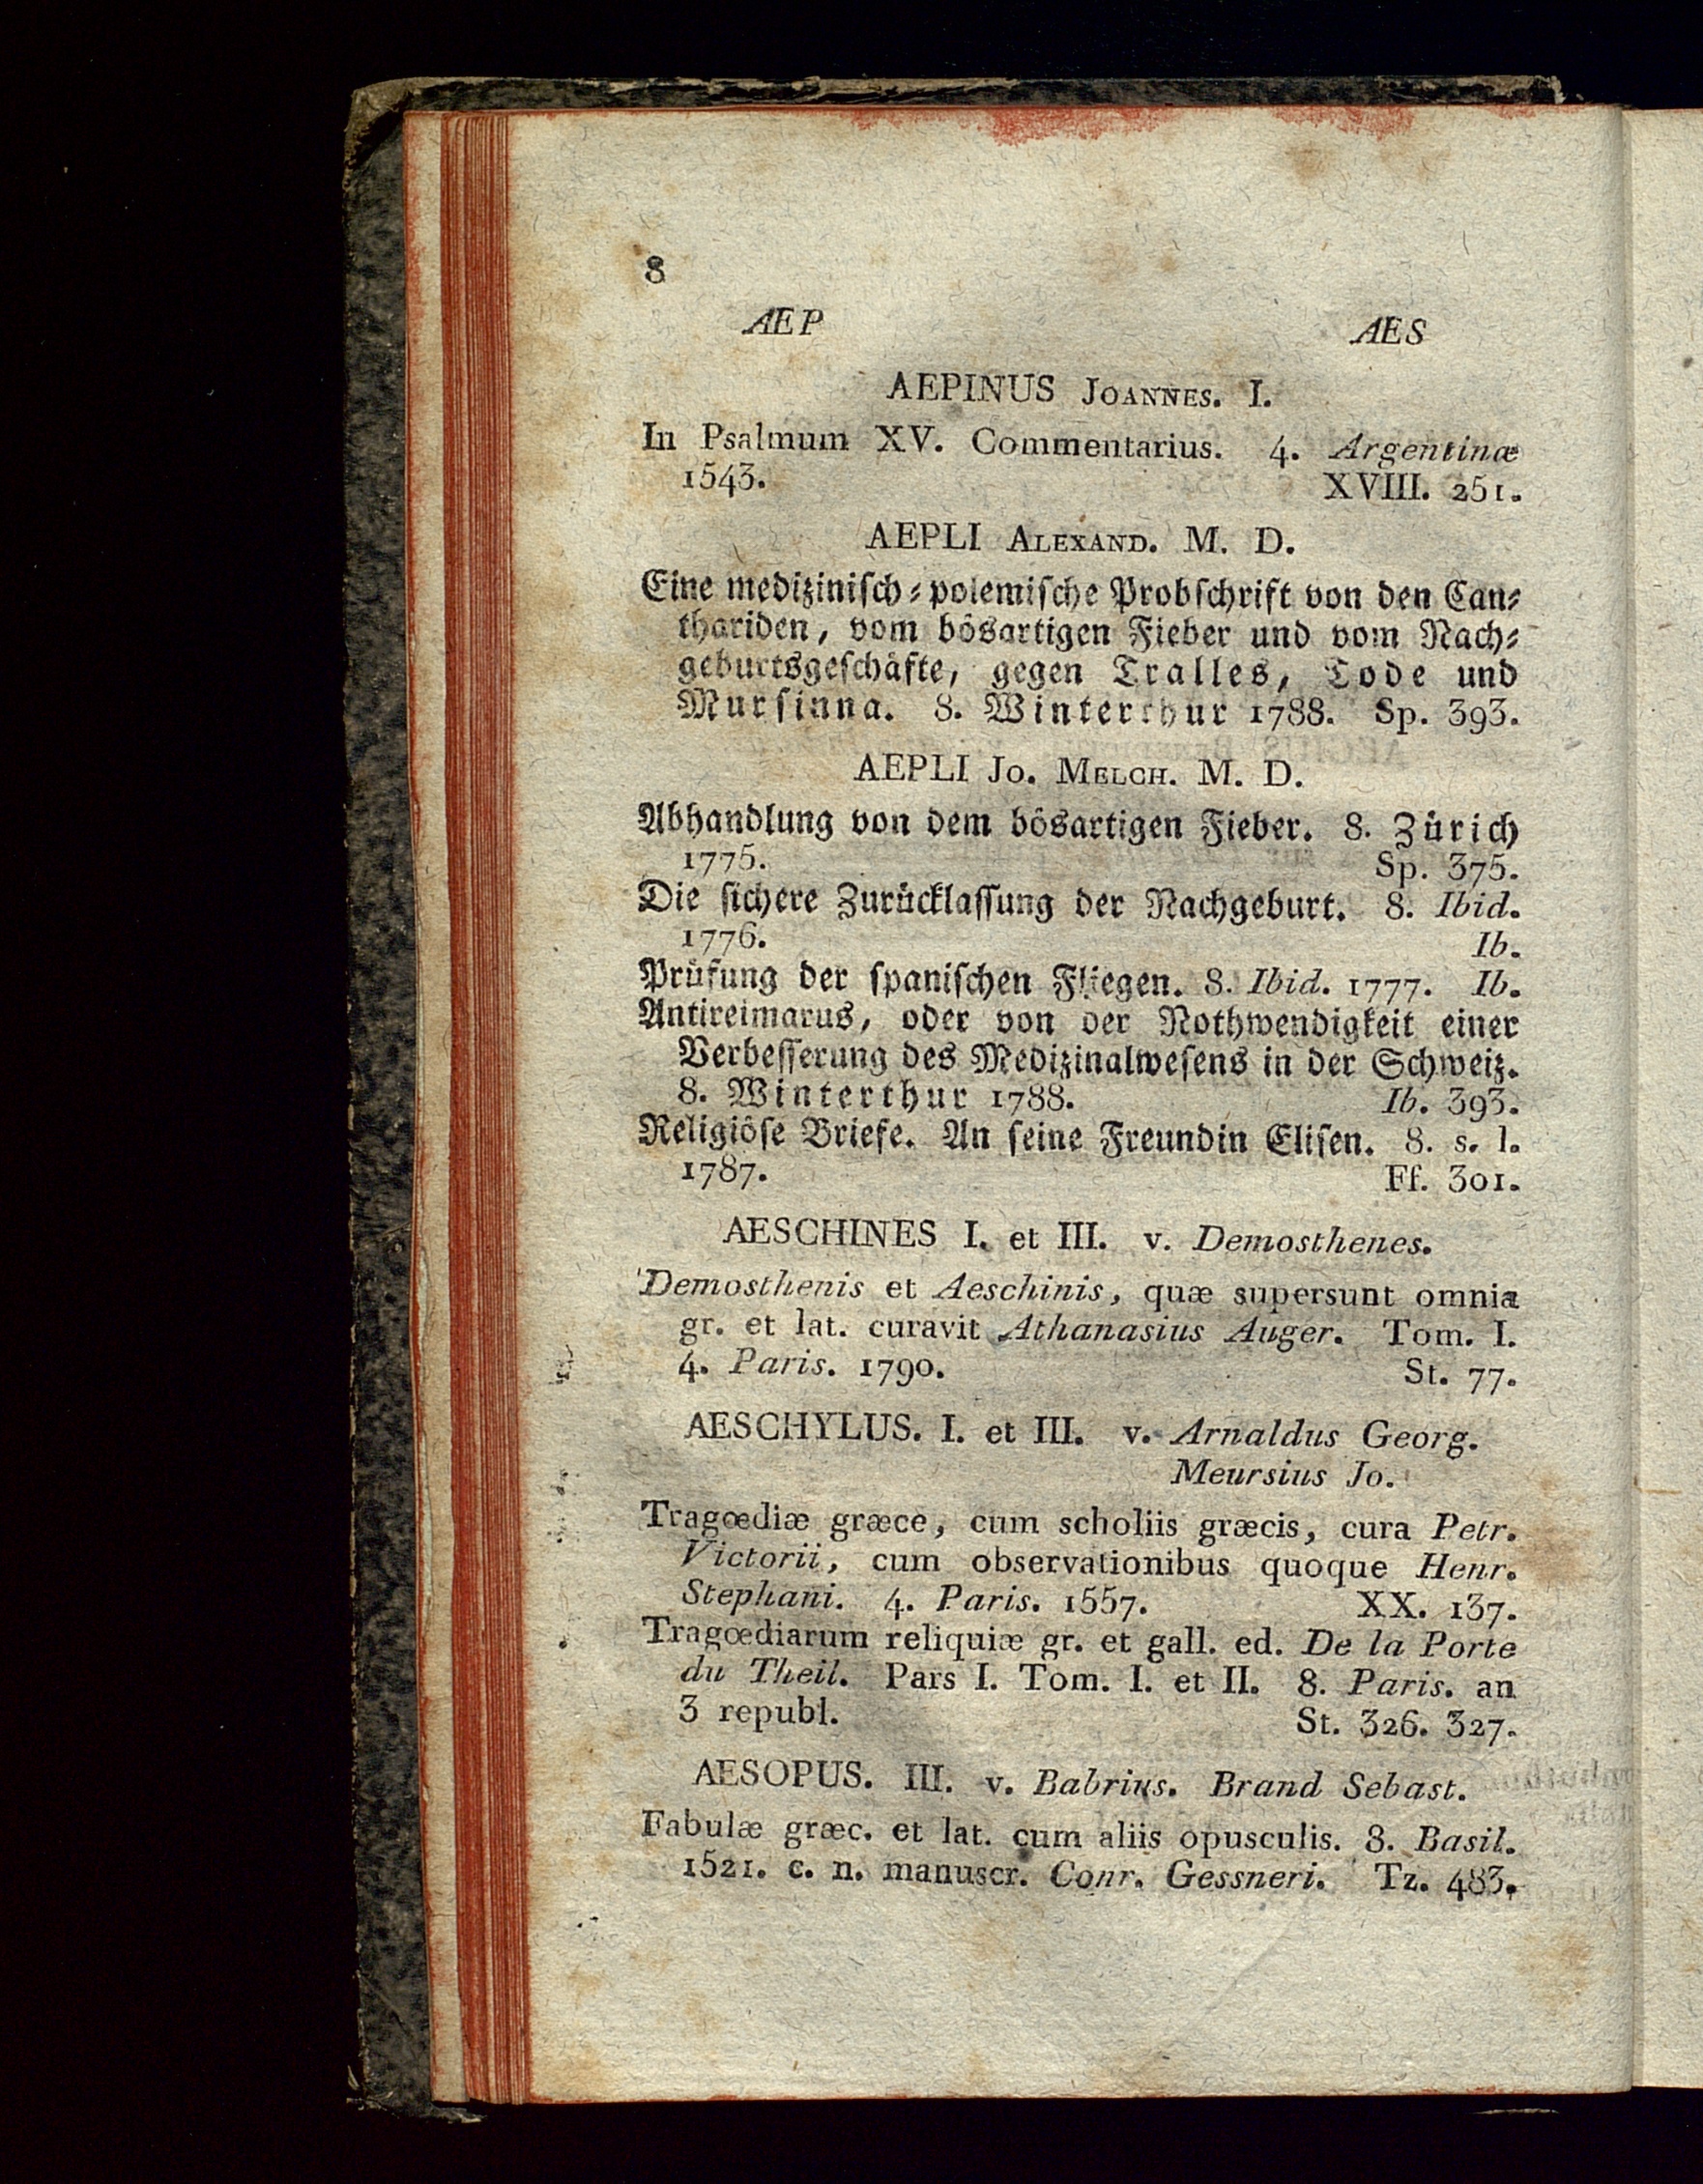 8
AEP AES
AEPINUS JOANNES. I.
In Psalmum XV. Commentarius. 4. Argentinæ
1543. XVIII. 251.
AEPLI ALEXAND. M. D.
Eine medizinisch-polemische Probschrift von den Can-
thariden, vom bösartigen Fieber und vom Nach-
geburtsgeschäfte, gegen Tralles, Tode und
Mursinna. 8. Winterthur 1788. Sp. 393.
AEPLI JO. MELCH. M. D.
Abhandlung von dem bösartigen Fieber. 8. Zürich
1775. Sp. 375.
Die sichere Zurücklassung der Nachgeburt. 8. Ibid.
1776. Ib.
Prüfung der spanischen Fliegen. 8. Ibid. 1777. Ib.
Antireimarus, oder von der Nothwendigkeit einer
Verbesserung des Medizinalwesens in der Schweiz.
8. Winterthur 1788. Ib. 393.
Religiöse Briefe. An seine Freundin Elisen. 8. s. l.
1787. Ff. 301.
AESCHINES I. et III. v. Demosthenes.
Demosthenis et Aeschinis, quæ supersunt omnia
gr. et lat. curavit Athanasius Auger. Tom. I.
4. Paris. 1790. St. 77.
AESCHYLUS. I. et III. v. Arnaldus Georg.
Meursius Jo.
Tragœdiæ græce, cum scholiis græcis, cura Petr.
Victorii, cum observationibus quoque Henr.
Stephani. 4. Paris. 1557. XX. 137.
Tragœdiarum reliquiæ gr. et gall. ed. De la Porte
du Theil. Pars I. Tom. I. et II. 8. Paris. an
3 republ. St. 326. 327.
AESOPUS. III. v. Babrius. Brand Sebast.
Fabulæ græc. et lat. cum aliis opusculis. 8. Basil.
1521. c. n. manuscr. Conr. Gessneri. Tz. 483.